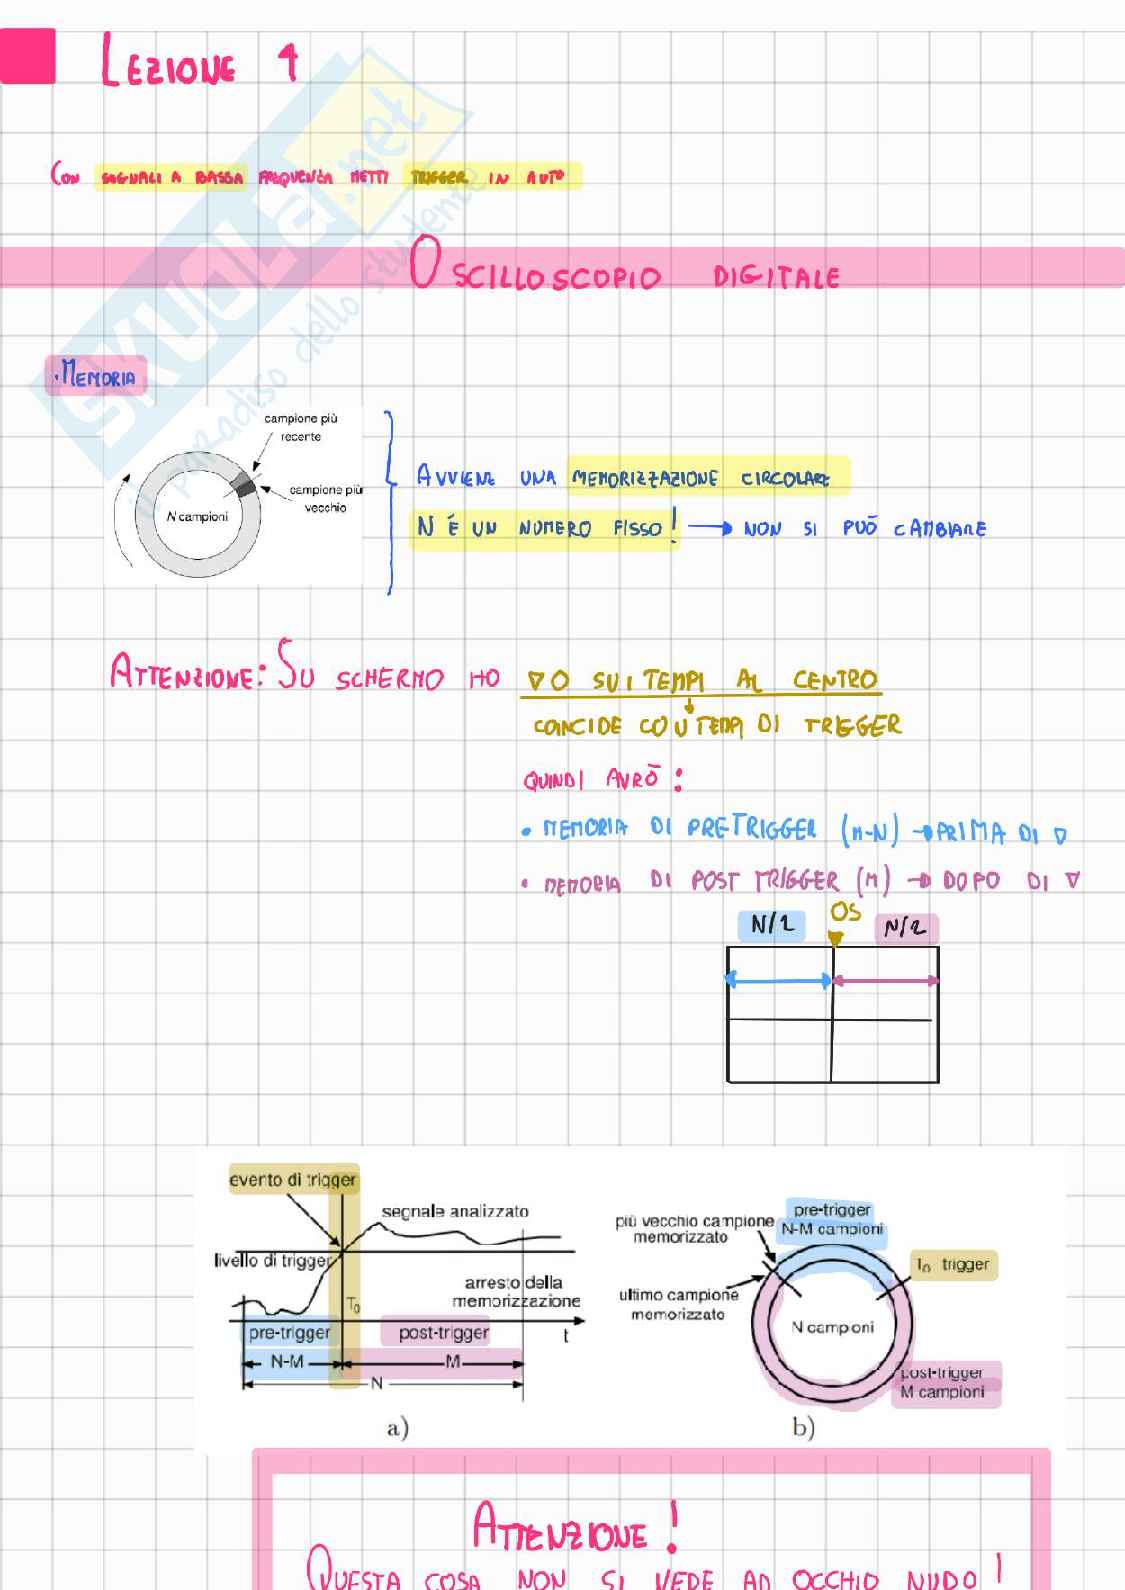 LEZIONE 4
CON SEGNALI A BASSA FREQUENZA METTI TRIGGER IN AUTO
OSCILLOSCOPIO DIGITALE
• MEMORIA
campione più recente
campione più vecchio
N campioni
AVVIENE UNA MEMORIZZAZIONE CIRCOLARE
N È UN NUMERO FISSO! → NON SI PUÒ CAMBIARE
ATTENZIONE: SU SCHERMO HO ▽ 0 SUI TEMPI AL CENTRO
↓
COINCIDE CON TEMPI DI TRIGGER
QUINDI AVRÒ:
• MEMORIA DI PRETRIGGER (M-N) → PRIMA DI ▽
• MEMORIA DI POST TRIGGER (M) → DOPO DI ▽
N/2 0S N/2
evento di trigger
segnale analizzato
livello di trigger
arresto della memorizzazione
T0
pre-trigger
post-trigger
t
N-M
M
N
a)
pre-trigger
N-M campioni
più vecchio campione memorizzato
T0 trigger
ultimo campione memorizzato
N campioni
post-trigger
M campioni
b)
ATTENZIONE!
QUESTA COSA NON SI VEDE AD OCCHIO NUDO!
SKUOLA.net
il paradiso dello studente